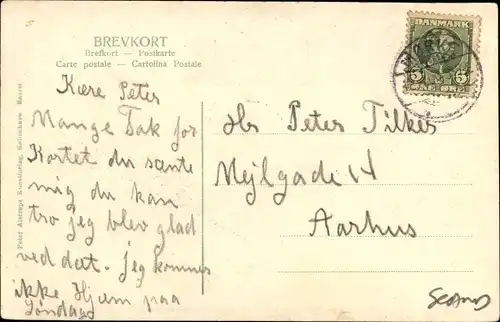 BREVKORT
Brefkort — Postkarte
Carte postale — Cartolina Postale
Peter Alstrups Kunstforlag, København. Eneret
DANMARK
5 5
ØRE ØRE
Kære Peter
Mange Tak for
Kortet du sænte
mig du kan
tro jeg blev glad
ved dæt. Jeg kommer
ikke Hjem paa
Søndag
Hr Peter Tilkes
Mejlgade 14
Aarhus